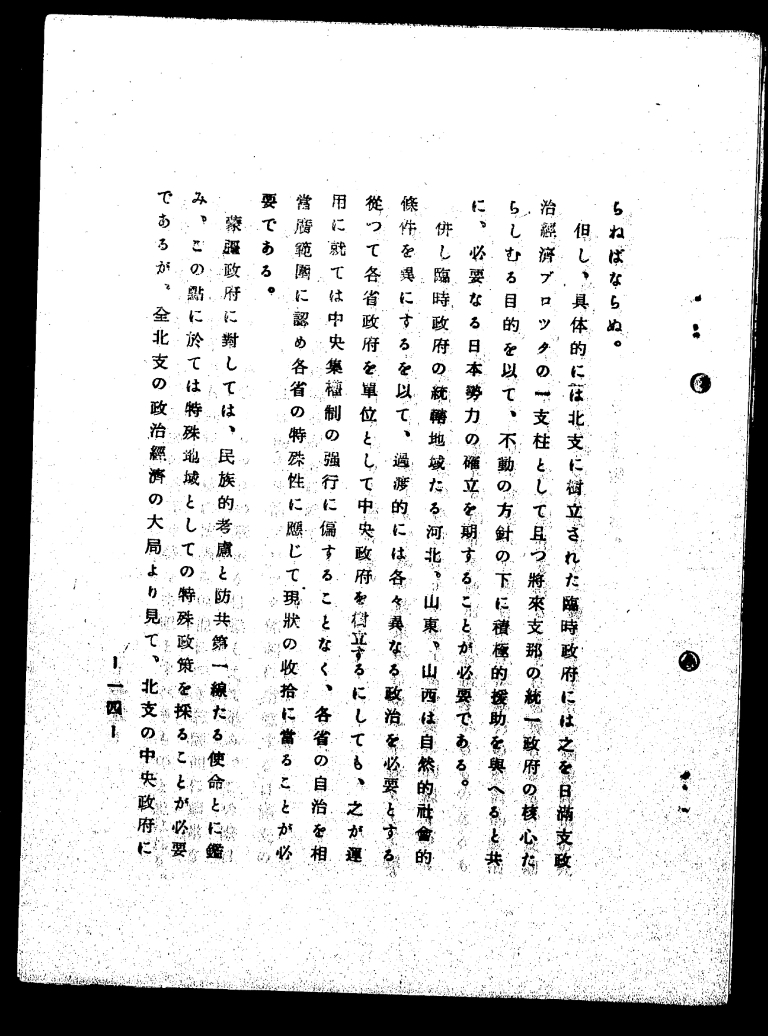 らねばならぬ。
但し、具体的には北支に樹立された臨時政府には之を日滿支政
治經濟ブロツクの一支柱として且つ將來支那の統一政府の核心た
らしむる目的を以て、不動の方針の下に積極的援助を與へると共
に、必要なる日本勢力の確立を期することが必要である。
併し臨時政府の統轄地域たる河北、山東、山西は自然的社會的
條件を異にするを以て、過渡的には各々異なる政治を必要とする
從つて各省政府を單位として中央政府を樹立するにしても、之が運
用に就ては中央集權制の强行に偏することなく、各省の自治を相
當廣範圍に認め各省の特殊性に應じて現狀の收拾に當ることが必
要である。
蒙疆政府に對しては、民族的考慮と防共第一線たる使命とに鑑
み、この點に於ては特殊地域としての特殊政策を採ることが必要
であるが、全北支の政治經濟の大局より見て、北支の中央政府に
ー一四ー